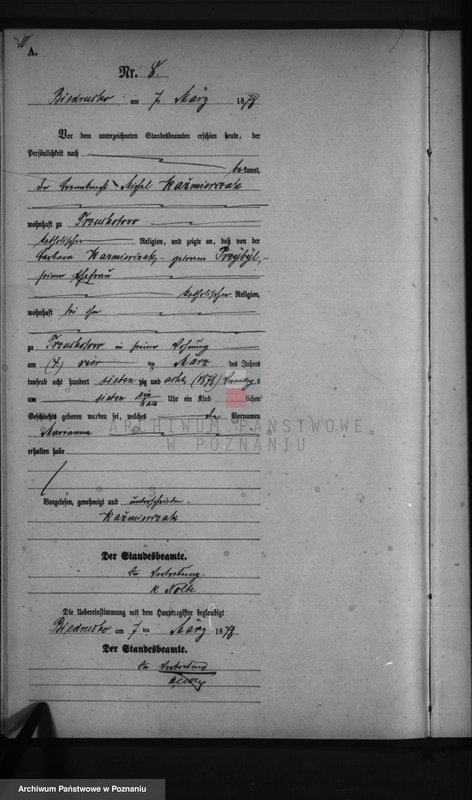 A.
Nr. 8.
Biedrusko am 7. März 1878
Vor dem unterzeichneten Standesbeamten erschien heute, der
Persönlichkeit nach
bekannt,
der Michel Kaźmierczak
wohnhaft zu
katholischer Religion, und zeigte an, daß von der
Barbara Kazmierczak, geborene
seiner Ehefrau
katholischer Religion,
wohnhaft bei ihm
zu in seiner Wohnung
am (4) vier ten März des Jahres
tausend acht hundert sieben zig und acht (1878)
um sieben ein halb Uhr ein Kind lichen
Geschlechts geboren worden sei, welches Vornamen
Marianna
erhalten habe
Vorgelesen, genehmigt und unterschrieben.
Kaźmierczak
Der Standesbeamte.
In Vertretung.
Nolte
Die Uebereinstimmung mit dem Hauptregister beglaubigt
Biedrusko am 7 ten März 1878.
Der Standesbeamte.
In Vertretung
ARCHIWUM PAŃSTWOWE
W POZNANIU
Archiwum Państwowe w Poznaniu